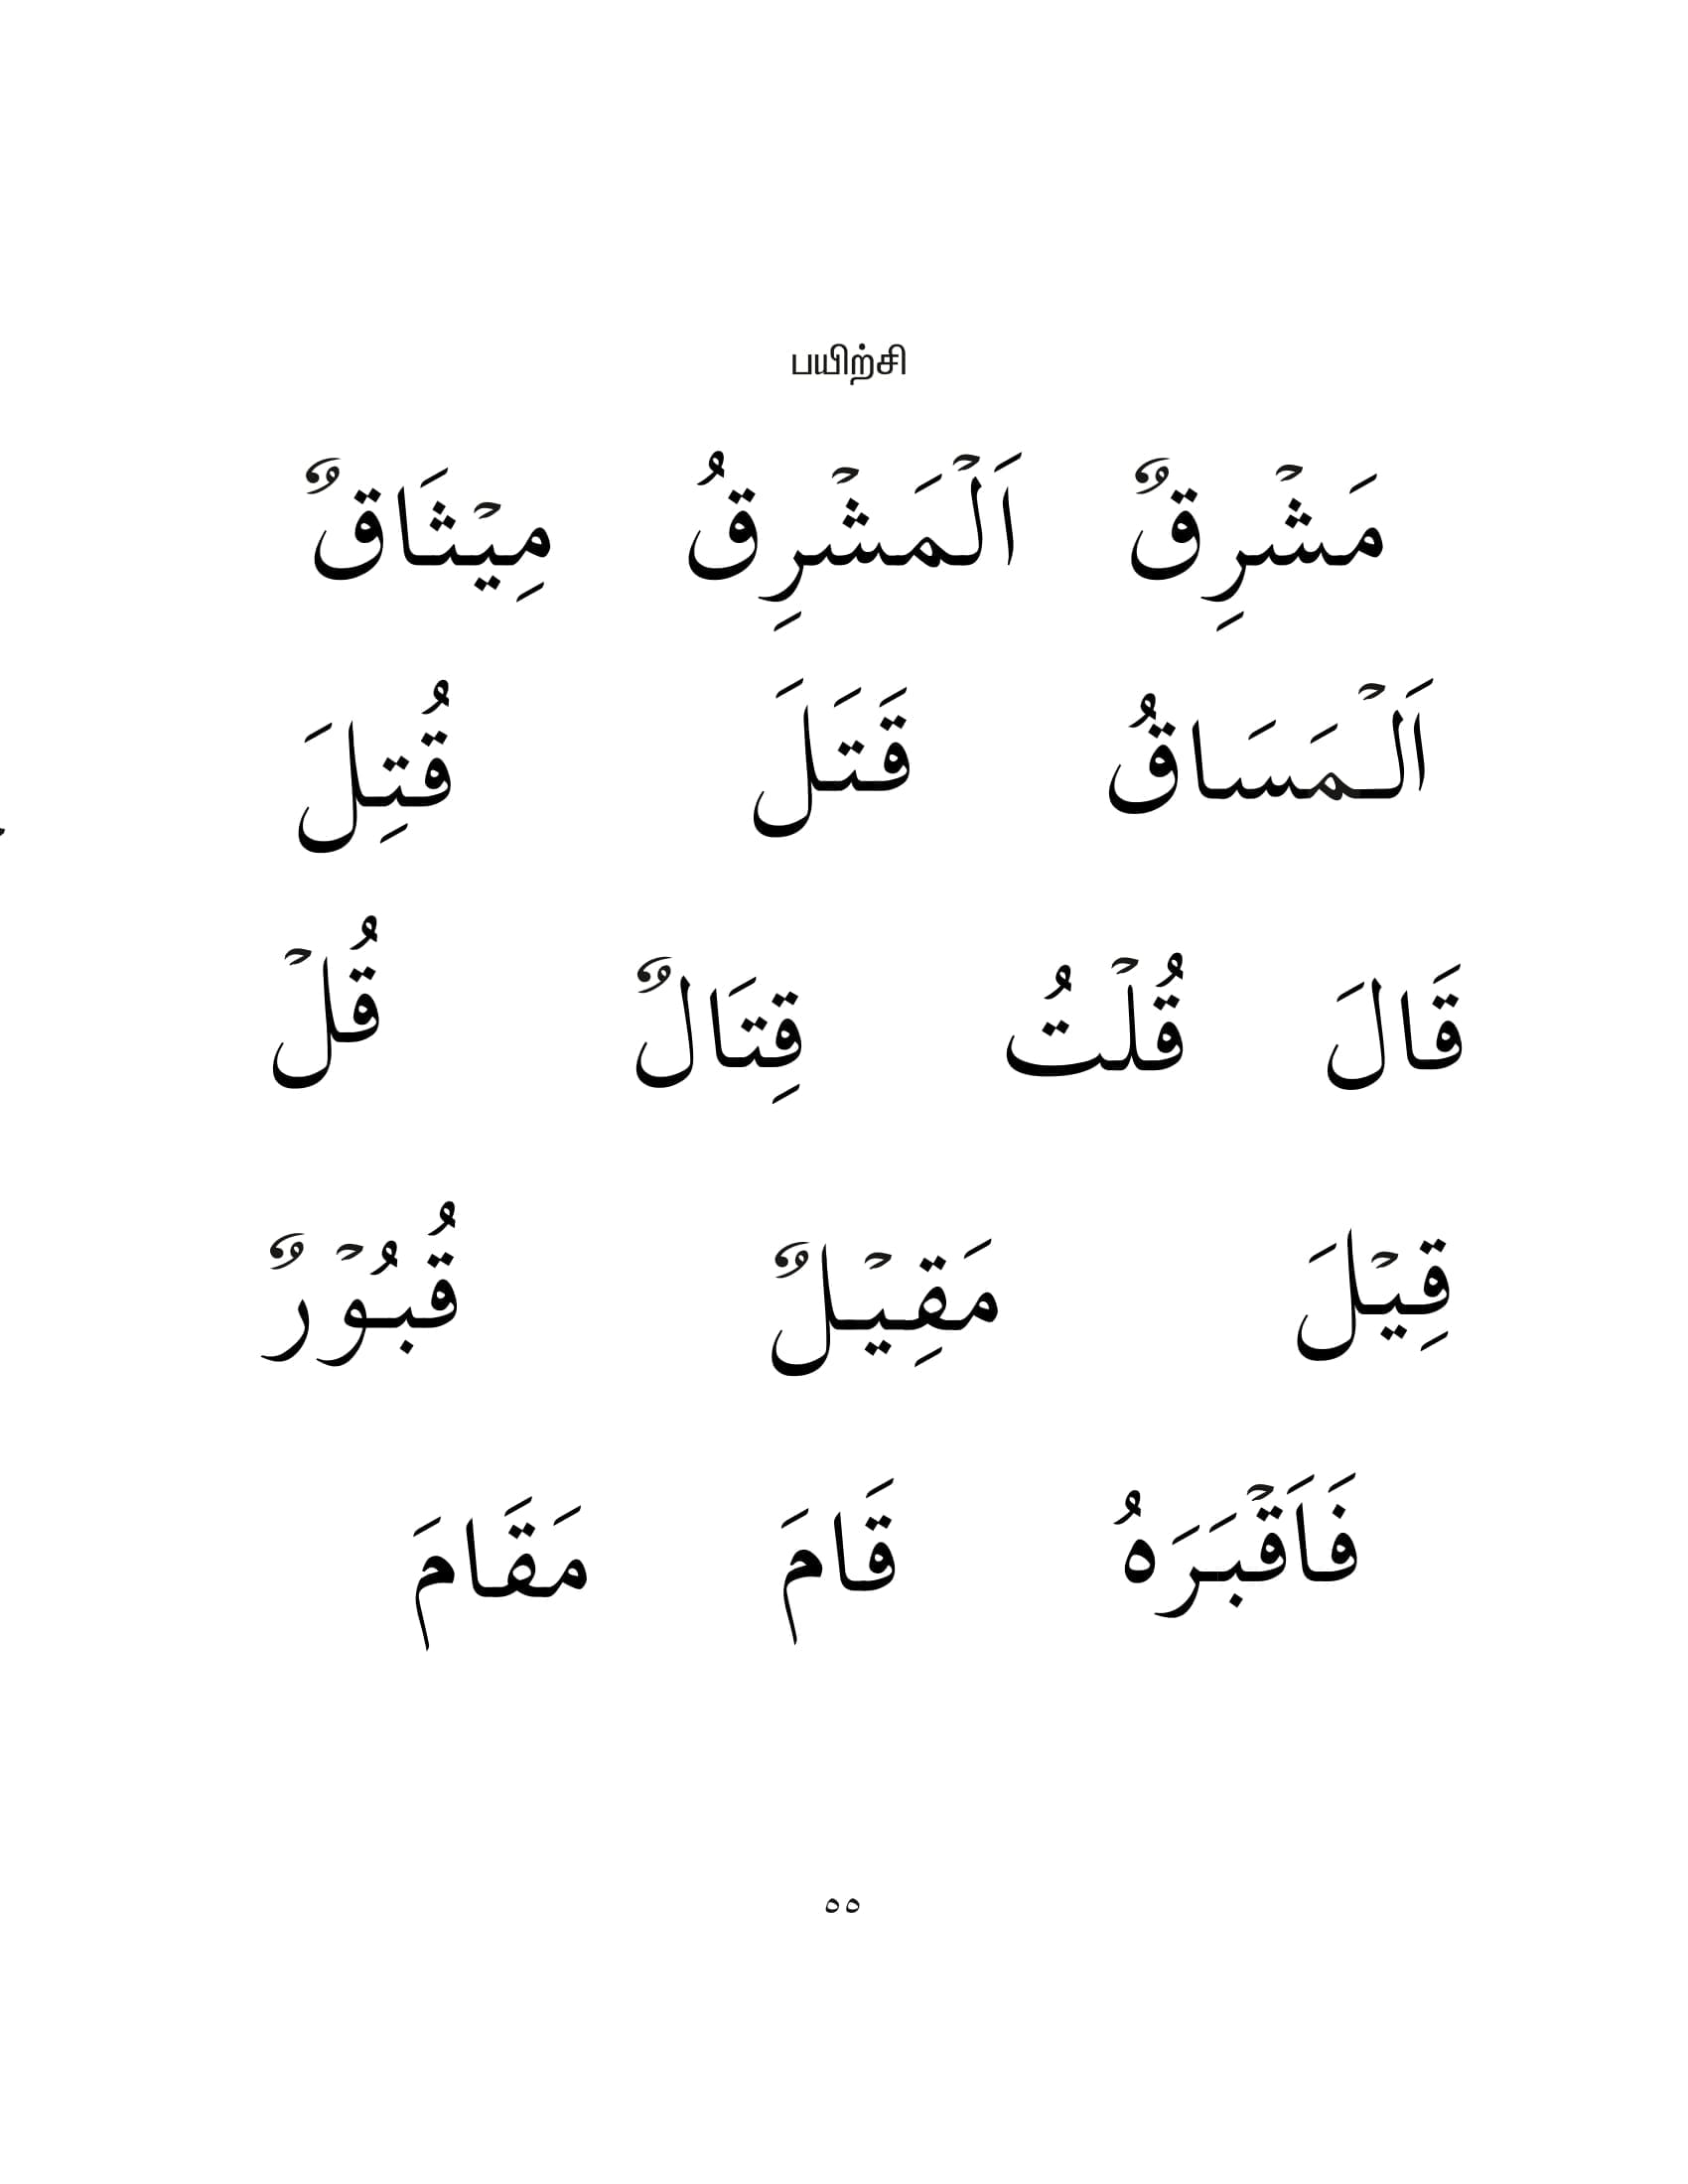 பயிற்சி
مَشْرِقٌ اَلْمَشْرِقُ مِيْثَاقٌ
اَلْمَسَاقُ قَتَلَ قُتِلَ
قَالَ قُلْتُ قِتَالٌ قُلْ
قِيْلَ مَقِيْلٌ قُبُوْرٌ
فَاَقْبَرَهُ قَامَ مَقَامَ
٥٥